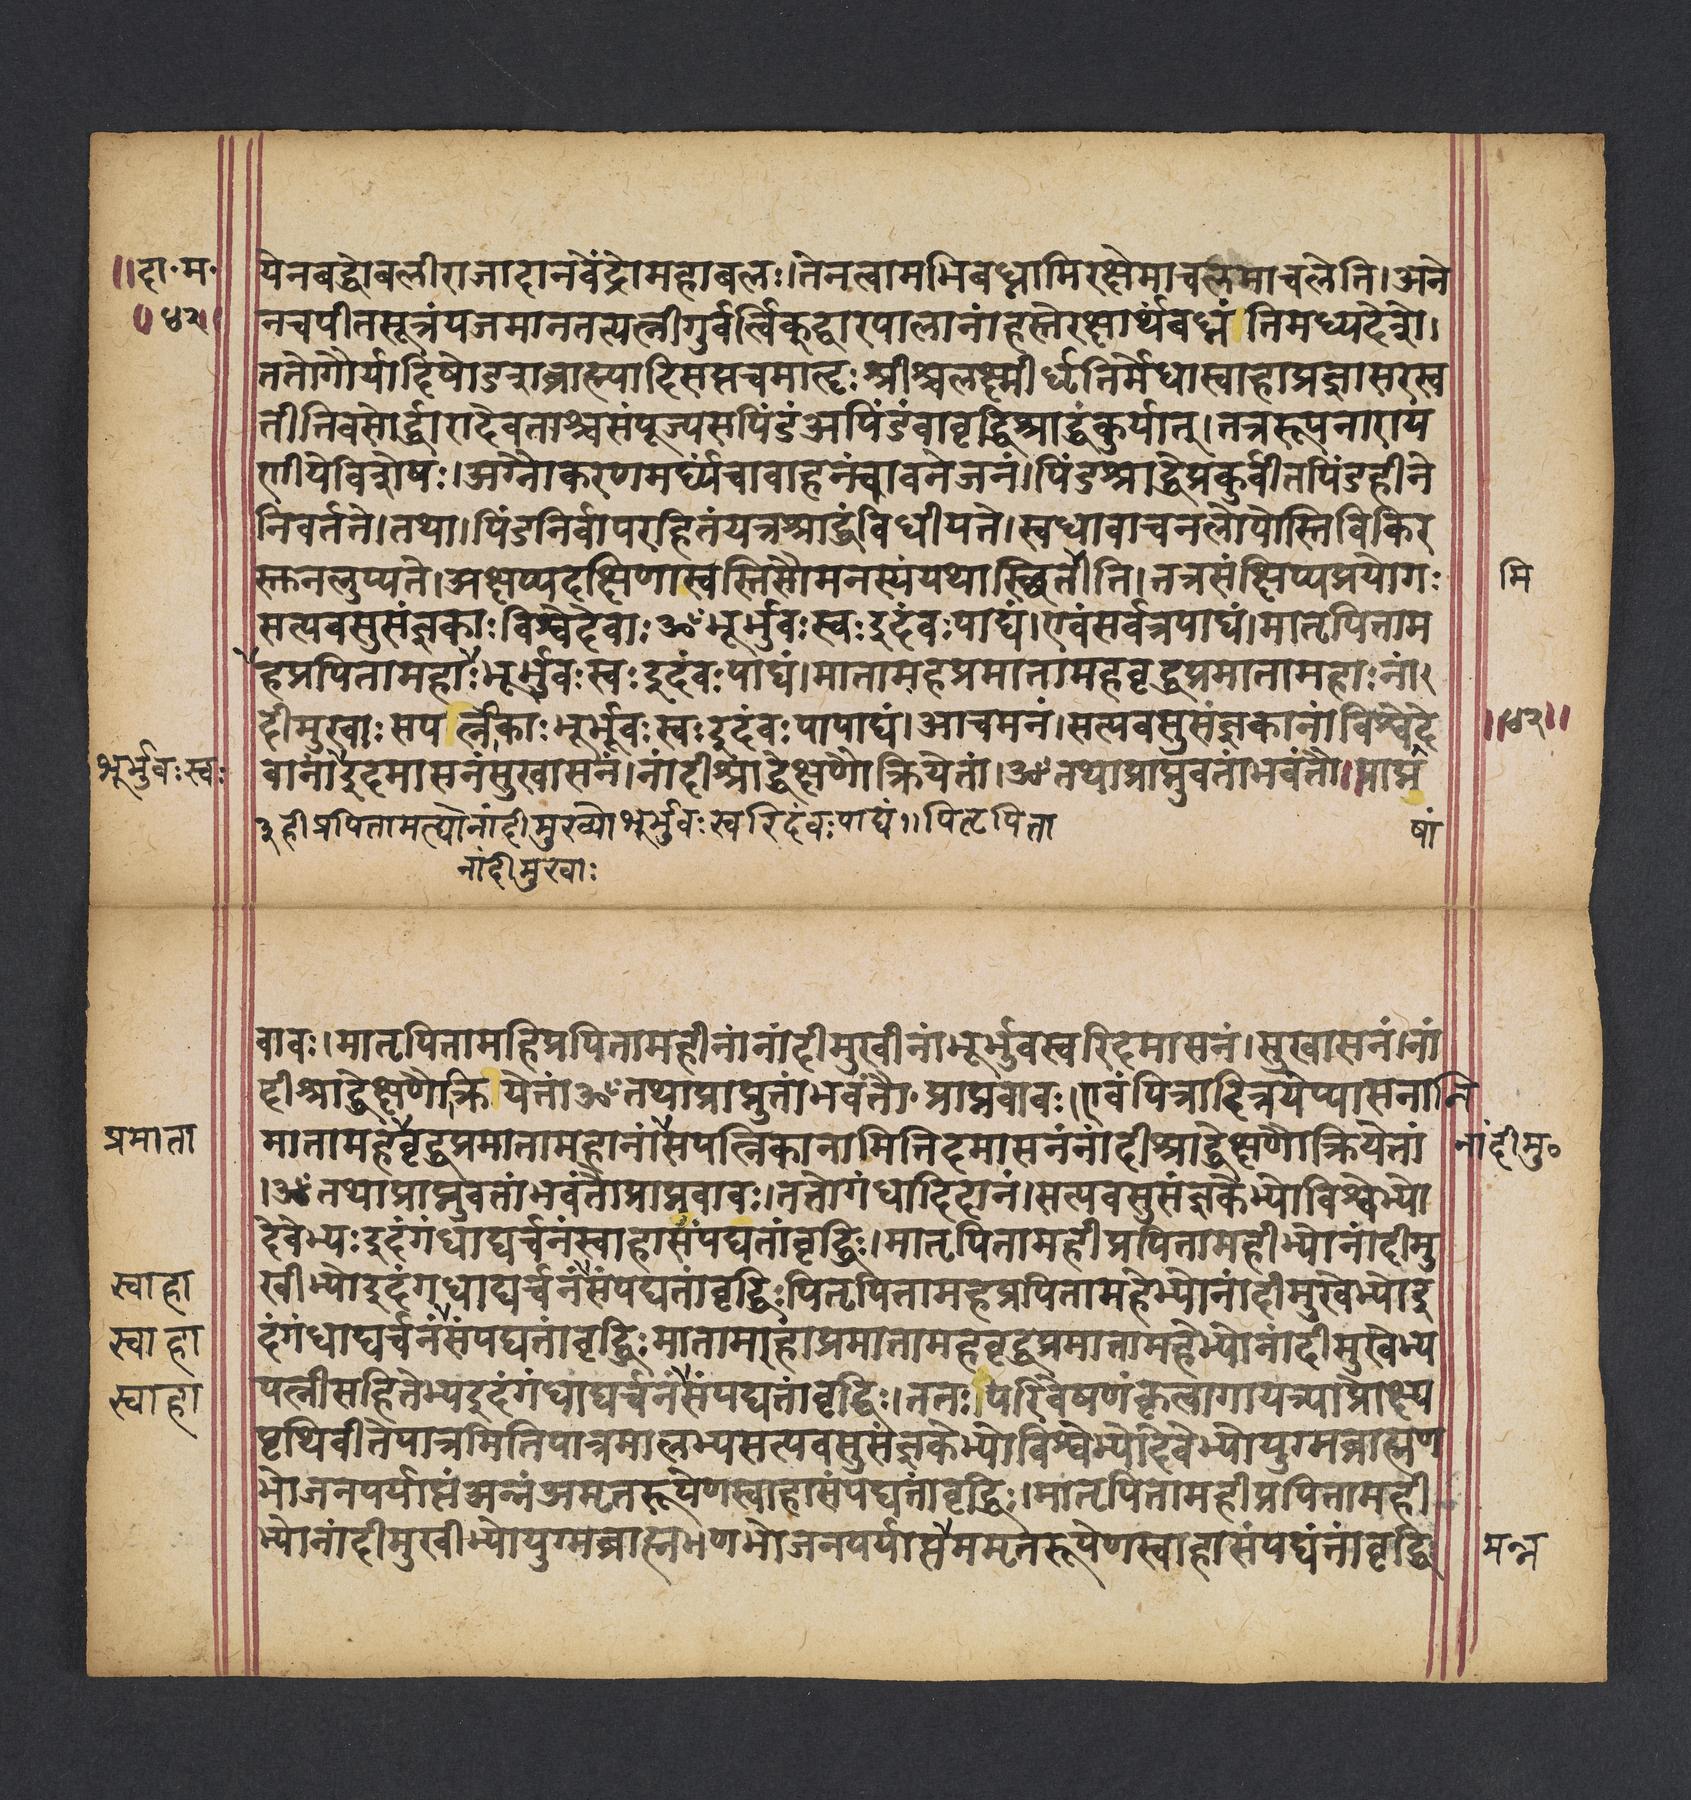 ॥दा॰म॰
॥४२॥
येनबद्धोबलीराजादानवेंद्रोमहाबलः।तेनत्वामभिबध्नामिरक्षेमाचलमाचलेति।अने
नचपीतसूत्रंयजमानतत्पत्नीगुर्वर्त्विक्द्वारपालानांहस्तेरक्षार्थंबध्नंतिमध्यदेशे।
ततोगौर्यादिषोडशब्राह्म्यादिसप्तचमातॄःश्रीश्चलक्ष्मीर्धृतिर्मेधास्वाहाप्रज्ञासरस्व
तीतिवसोर्द्धारादेवताश्चसंपूज्यसपिंडंअपिंडंवावृद्धिश्राद्धंकुर्यात्।तत्रसूपनाराय
णीयेविशेषः।अग्नौकरणमर्घ्यंचावाहनंचावनेजनं।पिंडश्राद्धेप्रकुर्वीतपिंडहीने
निवर्तते।तथा।पिंडनिर्वापरहितंयत्रश्राद्धंविधीयते।स्वधावाचनलोपोस्तिविकिर
स्तनलुप्यते।अक्षय्यदक्षिणास्वस्तिसौमनस्यंयथास्थितीति।तत्रसंक्षिप्यप्रयोगः
मि
सत्यवसुसंज्ञकाःविश्वेदेवाःॐभूर्भुवःस्वःइदंवःपाद्यं।एवंसर्वत्रपाद्यं।मातृपिताम
हप्रपितामहाःभूर्भुवःस्वःइदंवःपाद्यं।मातामहप्रमातामहवृद्धप्रमातामहाःनां
दीमुखाःसपत्निकाःभूर्भुवःस्वःइदंवःपापाद्यं।आचमनं।सत्यवसुसंज्ञकानांविश्वेदे
॥४२॥
भूर्भुवःस्वः
वानांइदमासनंसुखासनं।नांदीश्राद्धेक्षणौक्रियेतां।ॐतथाप्राप्नुवतांभवंतौ॥प्राप्नु
हीप्रपितामत्प्यौनांदीमुख्यौभूर्भुवःस्वरिदंवःपाद्यं॥पितृपिता
षां
नांदीमुखाः
वावः।मातृपितामहिप्रपितामहीनांनांदीमुखीनांभूर्भुवस्वरिदमासनं।सुखासनं।नां
दीश्राद्धेक्षणौक्रियेतांॐतथाप्राप्नुतांभवंतौ॰प्राप्नवावः।एवंपित्रादित्रयेप्यासनानि
प्रमाता
मातामहवृद्धप्रमातामहानांसपत्निकानामितिदमासनंनांदीश्राद्धेक्षणौक्रियेतां
नांदीमु०
।ॐतथाप्राप्नुवतांभवंतौप्राप्नवावः।ततोगंधादिदानं।सत्यवसुसंज्ञकेभ्योविश्वेभ्यो
देवेभ्यःइदंगंधाद्यर्चनंस्वाहासंपद्यतांवृद्धिः।मातृपितामहीप्रपितामहीभ्योनांदीमु
स्वाहा
खीभ्योइदंगधाद्यर्चनंसंपद्यतांवृद्धिःपितृपितामहप्रपितामहेभ्योनांदीमुखेभ्योइ
स्वाहा
दंगंधाद्यर्चनंसंपद्यतांवृद्धिःमातामाहाप्रमातामहवृद्धप्रमातामहेभ्योनांदीमुखेभ्य
स्वाहा
पत्नीसहितेभ्यइदंगंधाद्यर्चनंसंपद्यतांवृद्धिः।ततःपरिवेषणंकृत्वागायत्र्याप्रोक्ष्य
पृथिवीतेपात्रमितिपात्रमालभ्यसत्यवसुसंज्ञकेभ्योविश्वेभ्योदेवेभ्योयुग्मब्राह्मण
भोजनपर्याप्तंअन्नंअमृतरूपेणस्वाहासंपद्यतांवृद्धिः।मातृपितामहीप्रपितामही
भ्योनांदीमुखीभ्योयुग्मब्राह्मणभोजनपर्याप्तममृतरूपेणस्वाहासंपद्यंतांवृद्धिः
मन्न